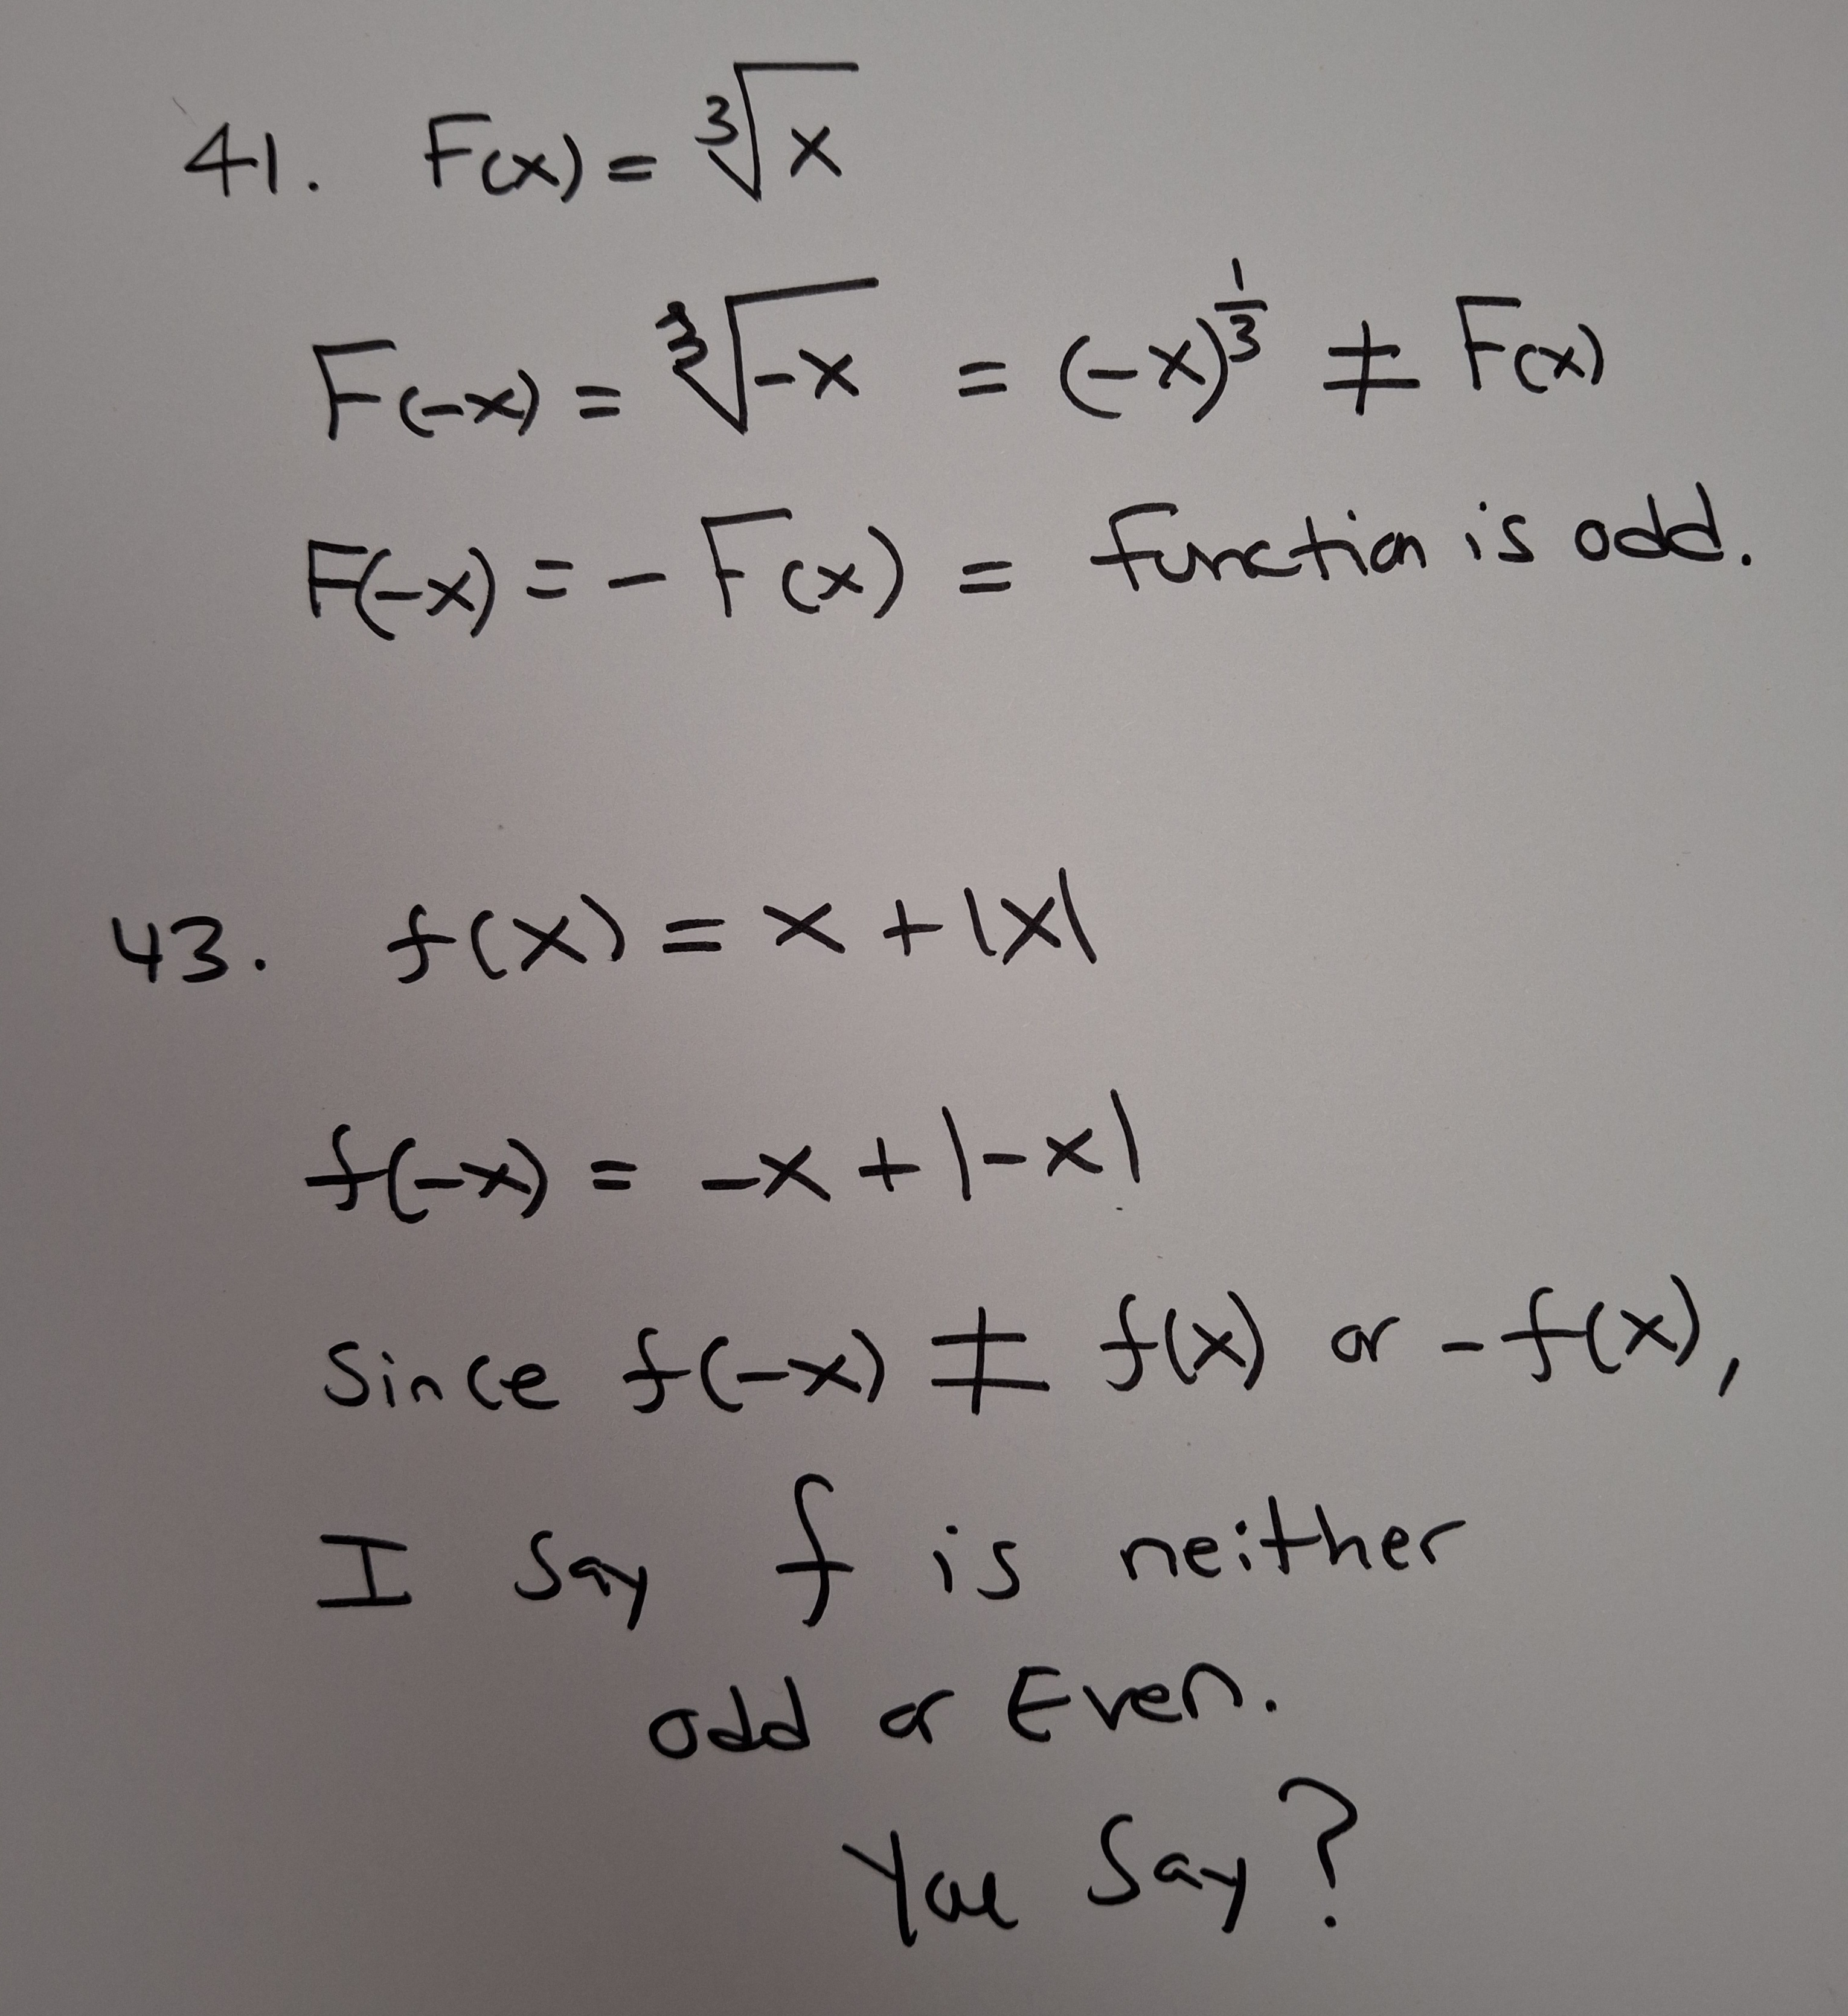 41. F(x) = ∛x
F(-x) = ∛-x = (-x)^(1/3) ≠ F(x)
F(-x) = - F(x) = function is odd.
43. f(x) = x + |x|
f(-x) = -x + |-x|
Since f(-x) ≠ f(x) or - f(x),
I say f is neither
odd or Even.
You Say?